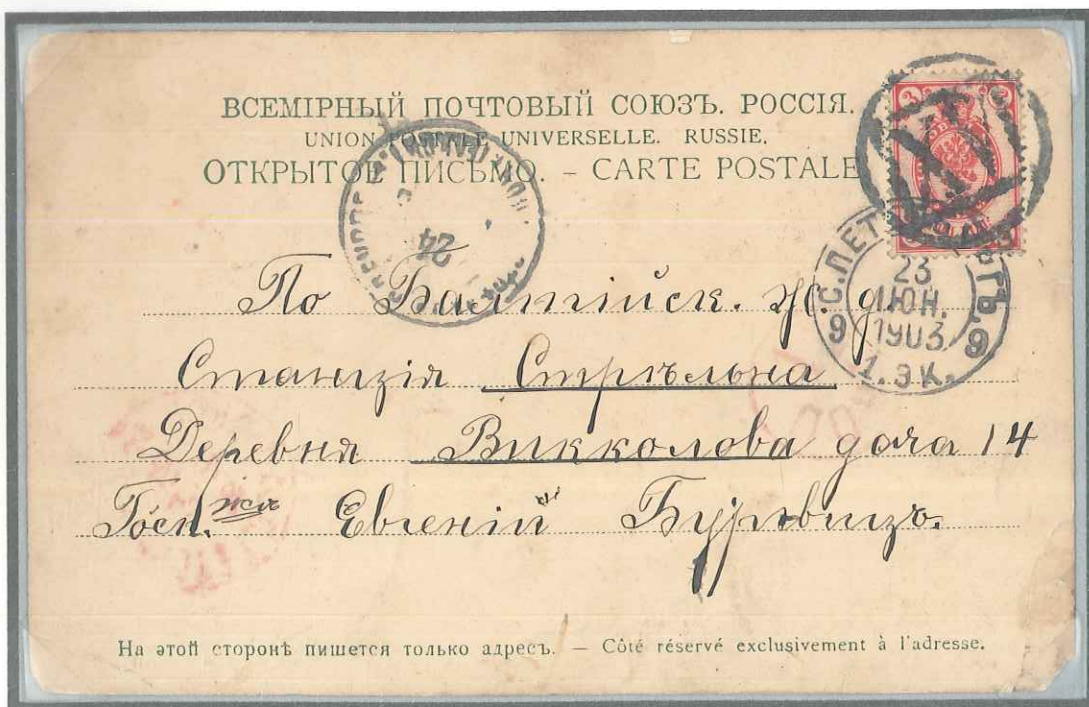 ВСЕМІРНЫЙ ПОЧТОВЫЙ СОЮЗЪ. РОССІЯ.
UNION POSTALE UNIVERSELLE. RUSSIE.
ОТКРЫТОЕ ПИСЬМО. – CARTE POSTALE
3
С.ПЕТ РГЪ.
23
ІЮН.
1903
9 9
1.ЭК.
24
По Балтійск. ж. д.
Станція Стрѣльна
Деревня Викколова дача 14
Госп.жа Евгеній
На этой сторонѣ пишется только адресъ. — Côté réservé exclusivement à l'adresse.